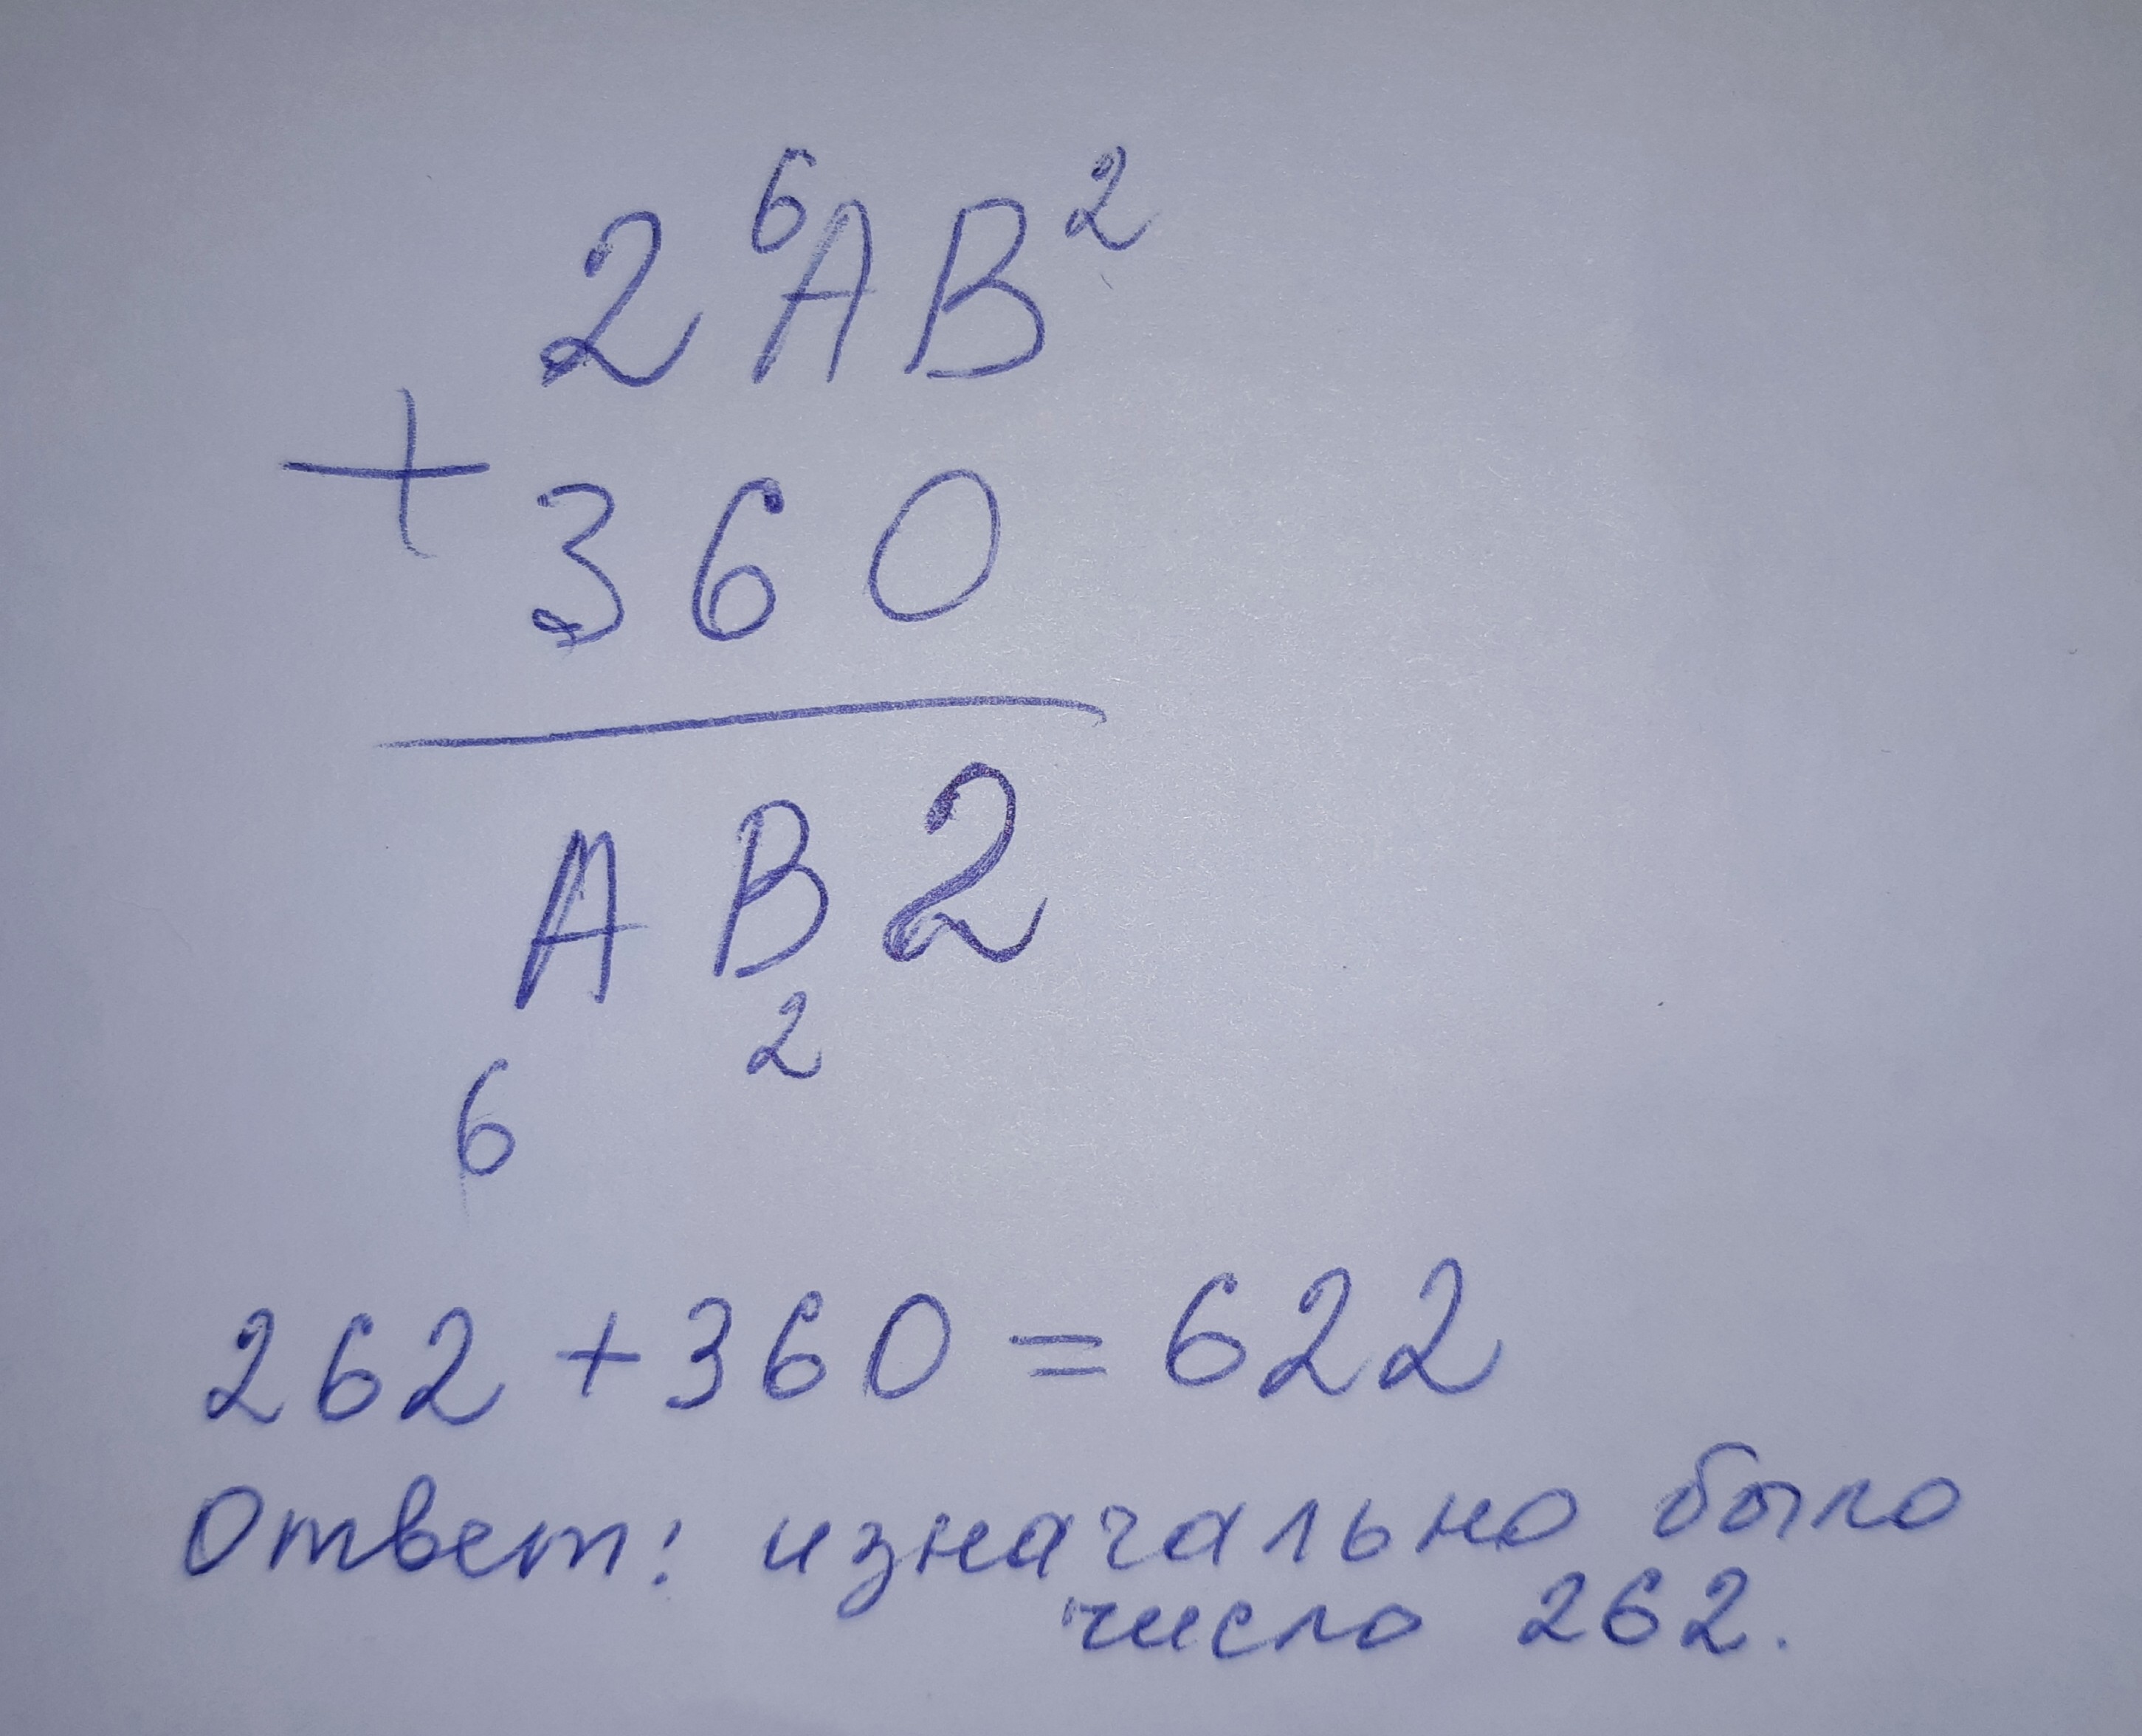 6 2
2AB
+
360
AB2
2
6
262 + 360 = 622
Ответ: изначально было
число 262.